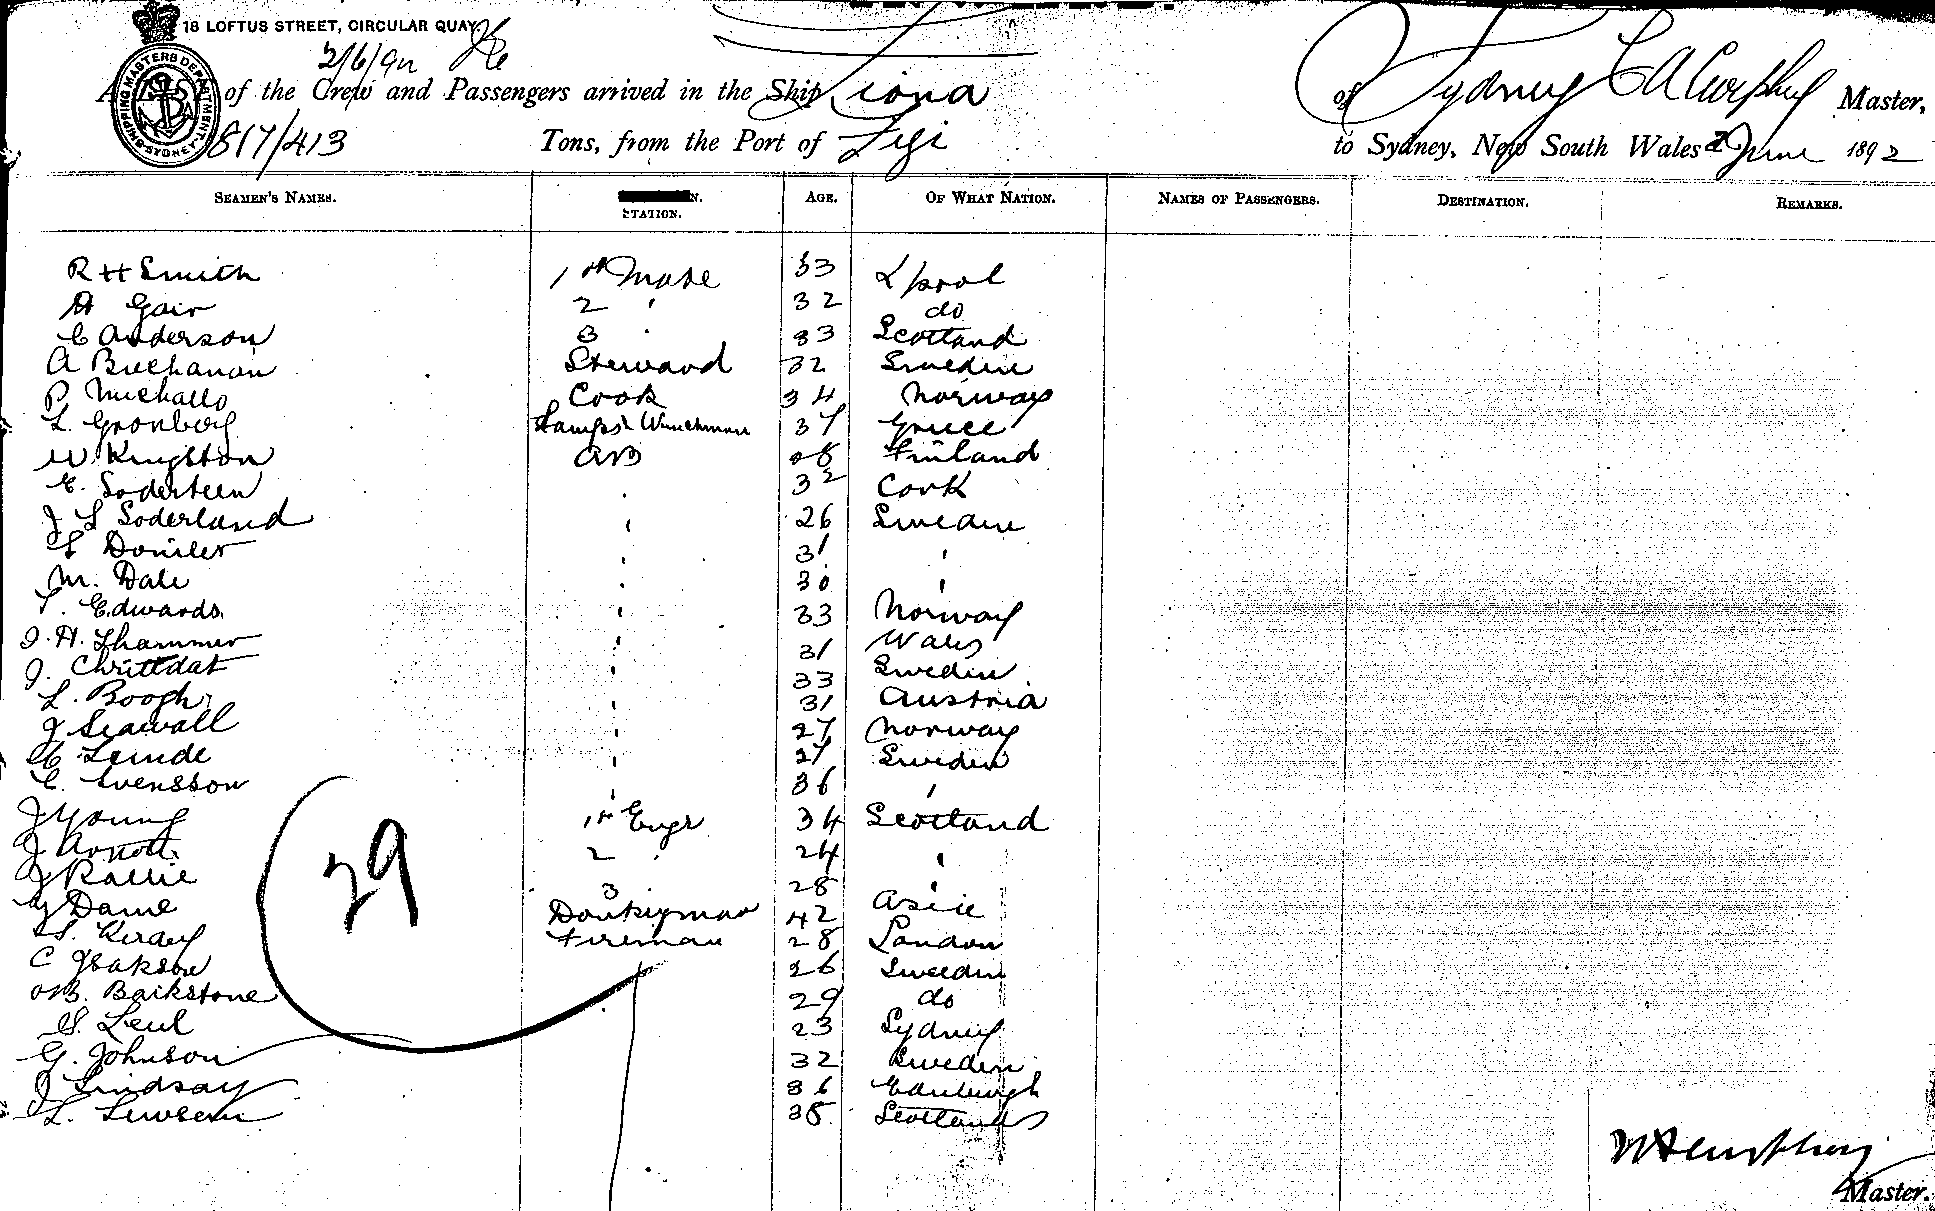 18 LOFTUS STREET, CIRCULAR QUAY.
2/6/92
SHIPPING MASTERS DEPARTMENT. SYDNEY.
of the Crew and Passengers arrived in the Ship Fiona of Sydney Master,
817/413 Tons, from the Port of Fiji to Sydney, New South Wales 2 June 1892
SEAMEN'S NAMES. STATION. AGE. OF WHAT NATION. NAMES OF PASSENGERS. DESTINATION. REMARKS.
R H Smith 1st Mate 33 Lpool
A Gair 2 " 32 do
C Anderson 3 " 33 Scotland
A Buchanan Steward 32 Sweden
P Michallo Cook 34 Norway
L. Gronberg Lamps & Winchman 37 Greece
W. Kingston AB Finland
E. Soderteen " 32 Cork
J L Soderland " 26 Sweden
" 31 "
M. Dale " 30 "
T. Edwards " 33 Norway
J. H. Thammer " 31 Wales
J. " 33 Sweden
L. Boogh " 31 Austria
J Seawall " 27 Norway
" 27 Sweden
C. Svensson " 36 "
J Young 1st Engr 34 Scotland
J Arnott 2 " 24 "
J Rallie 3 28 "
Dame Donkeyman 42
Fireman 28 London
C Isakson 26 Sweden
Baikstone 29 do
23 Sydney
G. Johnson 32 Sweden
J Lindsay 36 Edinburgh
L. 38 Scotland
29
Master.